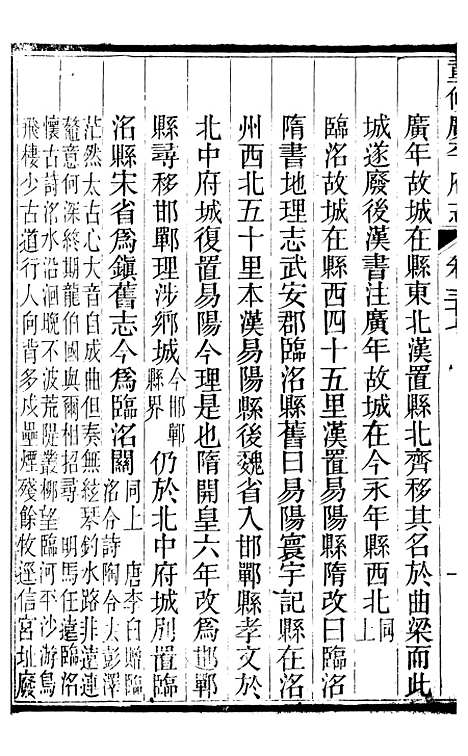 重修廣平府志 卷三十七
廣年故城在縣東北漢置縣北齊移其名於曲梁而此
城遂廢後漢書注廣年故城在今永年縣西北同上
臨洺故城在縣西四十五里漢置易陽縣隋改曰臨洺
隋書地理志武安郡臨洺縣舊曰易陽寰宇記縣在洺
州西北五十里本漢易陽縣後魏省入邯鄲縣孝文於
北中府城復置易陽今理是也隋開皇六年改爲邯鄲
縣尋移邯鄲理涉鄉城今邯鄲縣界仍於北中府城別置臨
洺縣宋省爲鎮舊志今爲臨洺關同上 唐李白贈臨洺令詩陶令去彭澤
茫然太古心大音自成曲但奏無絃琴釣水路非遠連
鼇意何深終期龍伯國與爾相招尋 明馬任遠臨洺
懷古詩洺水沿洄晩不波荒隄叢柳望臨河平沙游鳥
飛棲少古道行人向背多戍壘煙殘餘牧逕信宮址廢